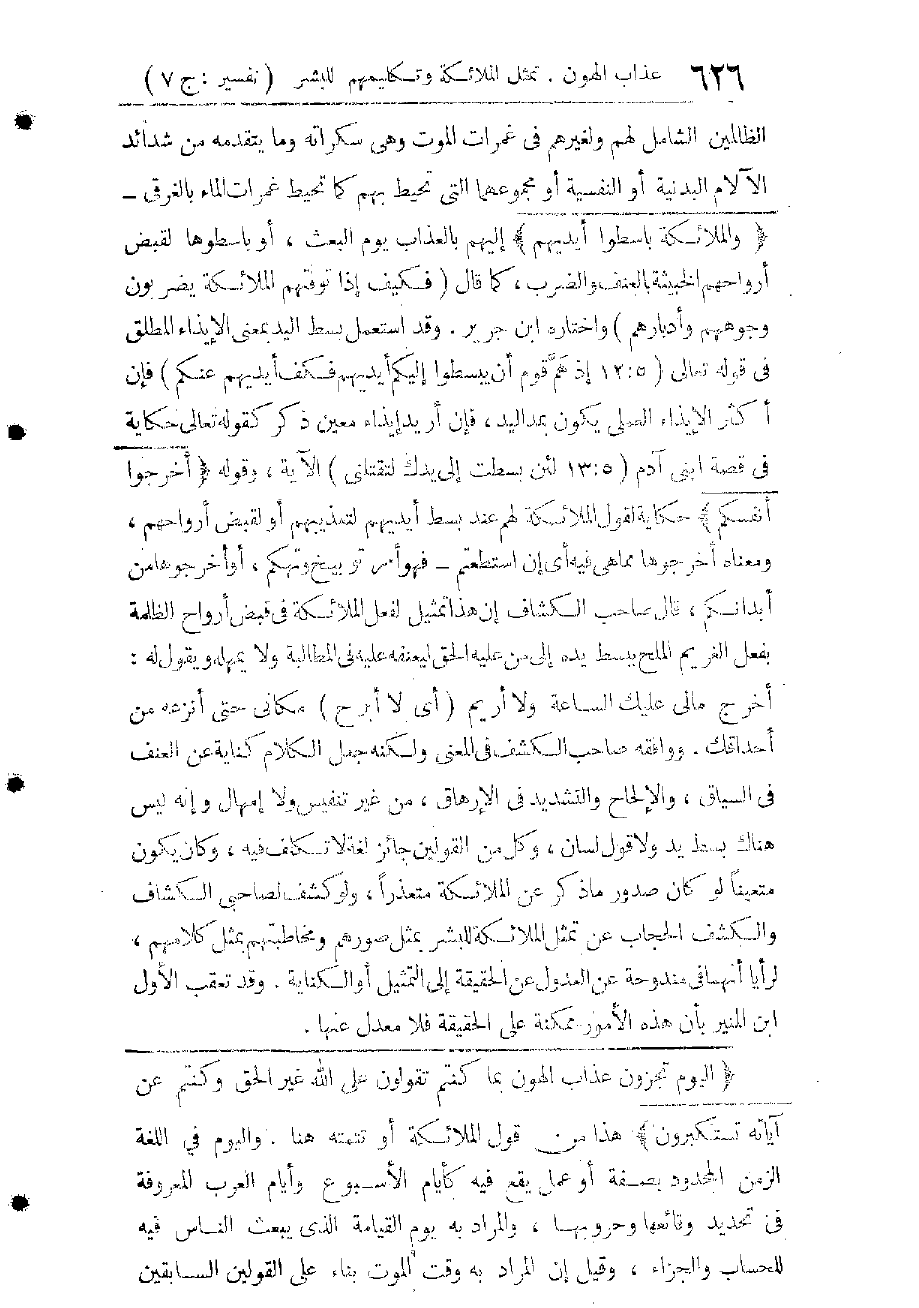 ٦٢٦ عذاب الهون . تمثل الملائكة وتكليمهم للبشر ( تفسير : ج ٧ )
الظالمين الشامل لهم ولغيرهم فى غمرات الموت وهى سكراته وما يتقدمه من شدائد
الآلام البدنية أو النفسية أو مجموعهما التى تحيط بهم كما تحيط غمرات الماء بالغرقى –
﴿ والملائكة باسطوا أيديهم ﴾ إليهم بالعذاب يوم البعث ، أو باسطوها لقبض
أرواحهم الخبيثة بالعنف والضرب ، كما قال ( فكيف إذا توفتهم الملائكة يضربون
وجوههم وأدبارهم ) واختاره ابن جرير . وقد استعمل بسط اليد بمعنى الإيذاء المطلق
فى قوله تعالى ( ٥ : ١٢ إذ همَّ قوم أن يبسطوا إليكم أيديهم فكف أيديهم عنكم ) فإن
أكثر الإيذاء العملى يكون بمد اليد ، فإن أريد إيذاء معين ذكر كقوله تعالى حكاية
فى قصة ابنى آدم ( ٥ : ١٣ لئن بسطت إلى يدك لتقتلنى ) الآية ، وقوله ﴿ أخرجوا
أنفسكم ﴾ حكاية لقول الملائكة لهم عند بسط أيديهم لتعذيبهم أو لقبض أرواحهم ،
ومعناه أخرجوها مما هى فيه أى إن استطعتم – فهو أمر توبيخ وتهكم ، أو أخرجوها من
أبدانكم ، قال صاحب الكشاف إن هذا تمثيل لفعل الملائكة فى قبض أرواح الظلمة
بفعل الغريم الملح يبسط يده إلى من عليه الحق ليعنفه عليه فى المطالبة ولا يمهله ويقول له :
أخرج مالى عليك الساعة ولا أريم ( أى لا أبرح ) مكانى حتى أنزعه من
أحداقك . ووافقه صاحب الكشف فى المعنى ولكنه جعل الكلام كناية عن العنف
فى السياق ، والإلحاح والتشديد فى الإرهاق ، من غير تنفيس ولا إمهال وإنه ليس
هناك بسط يد ولا قول لسان ، وكل من القولين جائز لغة لا تكلف فيه ، وكان يكون
متعيناً لو كان صدور ماذكر عن الملائكة متعذراً ، ولو كشف لصاحبى الكشاف
والكشف الحجاب عن تمثل الملائكة للبشر بمثل صورهم ومخاطبتهم بمثل كلامهم ،
لرأيا أنهما فى مندوحة عن العدول عن الحقيقة إلى التمثيل أو الكناية . وقد تعقب الأول
ابن المنير بأن هذه الأمور ممكنة على الحقيقة فلا معدل عنها .
﴿ اليوم تجزون عذاب الهون بما كنتم تقولون على الله غير الحق وكنتم عن
آياته تستكبرون ﴾ هذا من قول الملائكة أو تتمته هنا . واليوم في اللغة
الزمن المحدود بصفة أو عمل يقع فيه كأيام الأسبوع وأيام العرب المعروفة
فى تحديد وقائعها وحروبها ، والمراد به يوم القيامة الذى يبعث الناس فيه
للحساب والجزاء ، وقيل إن المراد به وقت الموت بناء على القولين السابقين